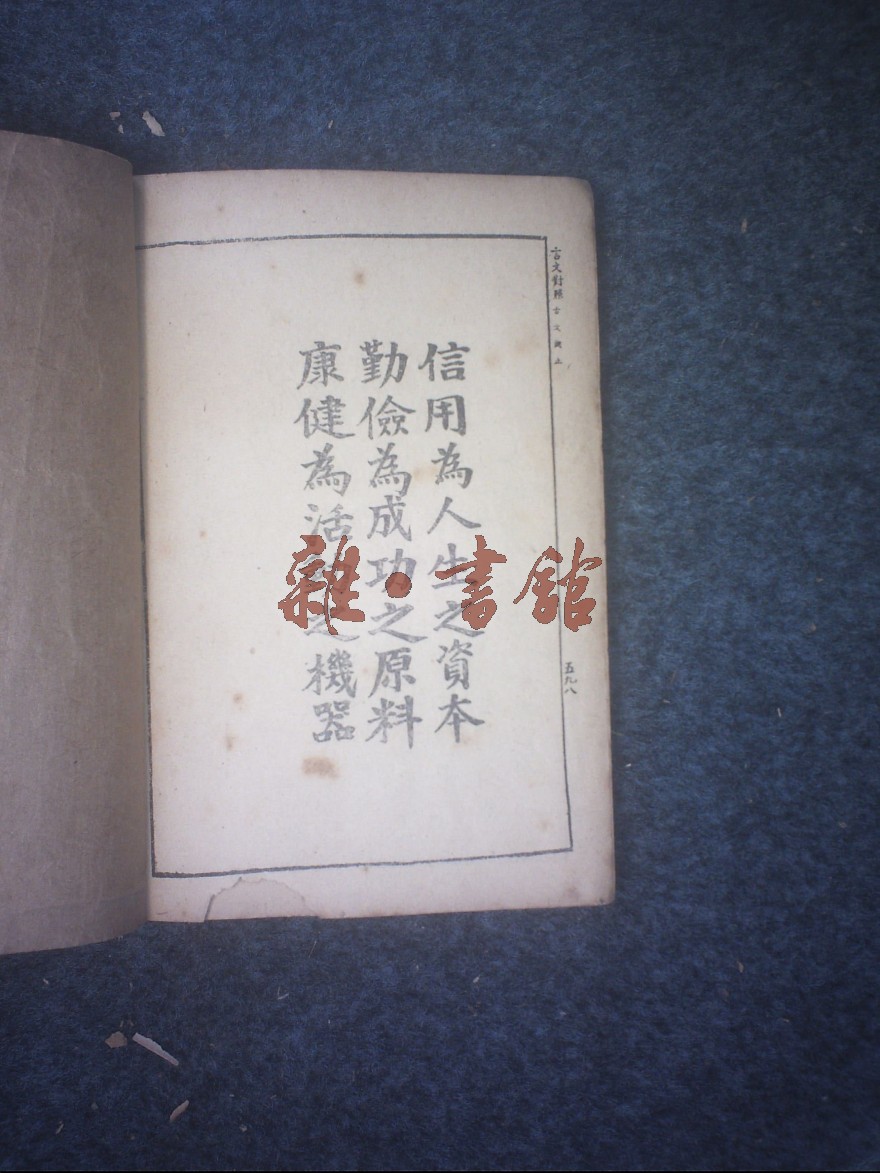 言文對照
五九八
信用為人生之資本
勤儉為成功之原料
康健為活之機器
雜·書館